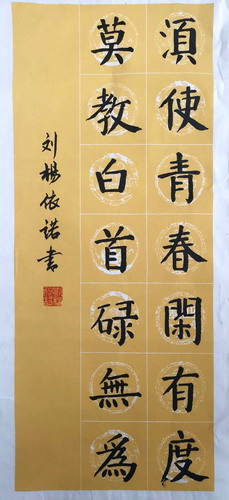 須使青春閑有度
莫教白首碌無為
刘楊依诺書